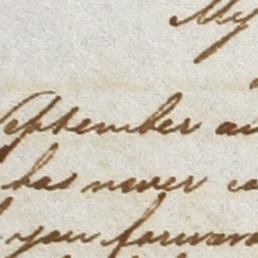 My
September an
has never co
you forward